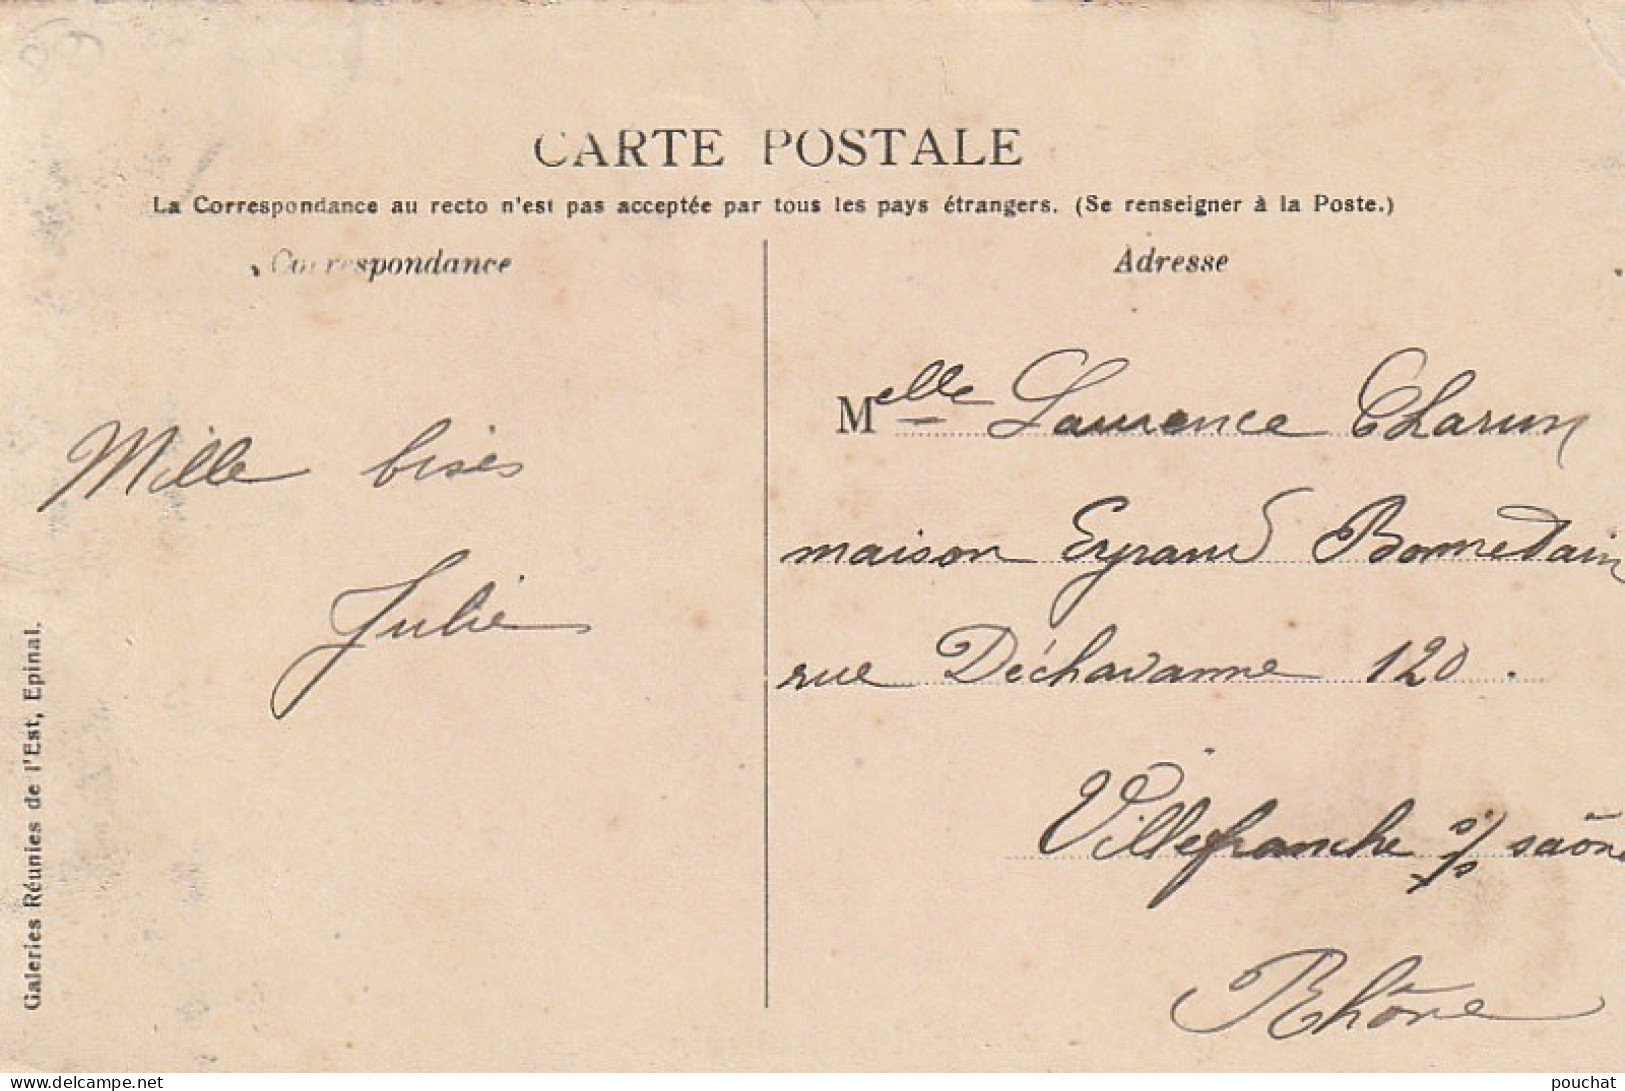 CARTE POSTALE
La Correspondance au recto n'est pas acceptée par tous les pays étrangers. (Se renseigner à la Poste.)
Correspondance
Adresse
Mille bises
Julie
Melle Laurence Charun
maison Eyraud Bonnetain
rue Déchavanne 120.
Villefranche s/s saône
Rhône
Galeries Réunies de l'Est, Epinal.
delcampe.net
pouchat